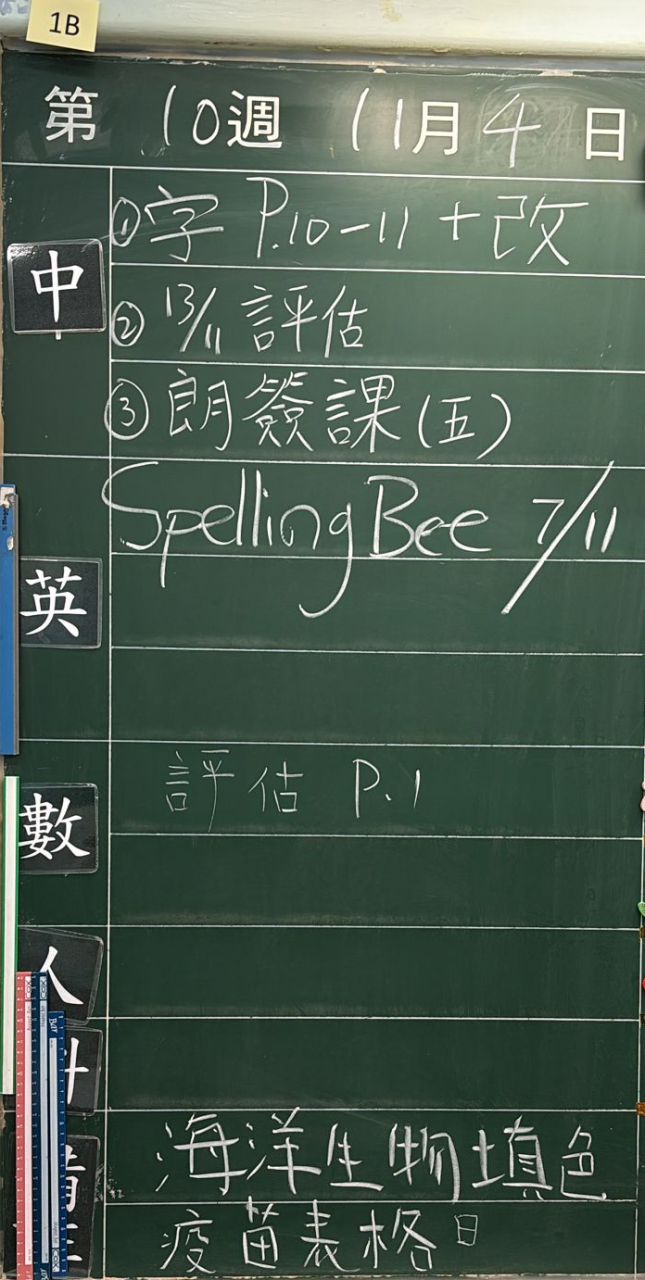 1B
第 10週 11月4日
中
①字 P.10-11 + 改
② 13/11 評估
③朗簽課(五)
Spelling Bee 7/11
英
評估 P.1
數
人
海洋生物填色
疫苗表格日